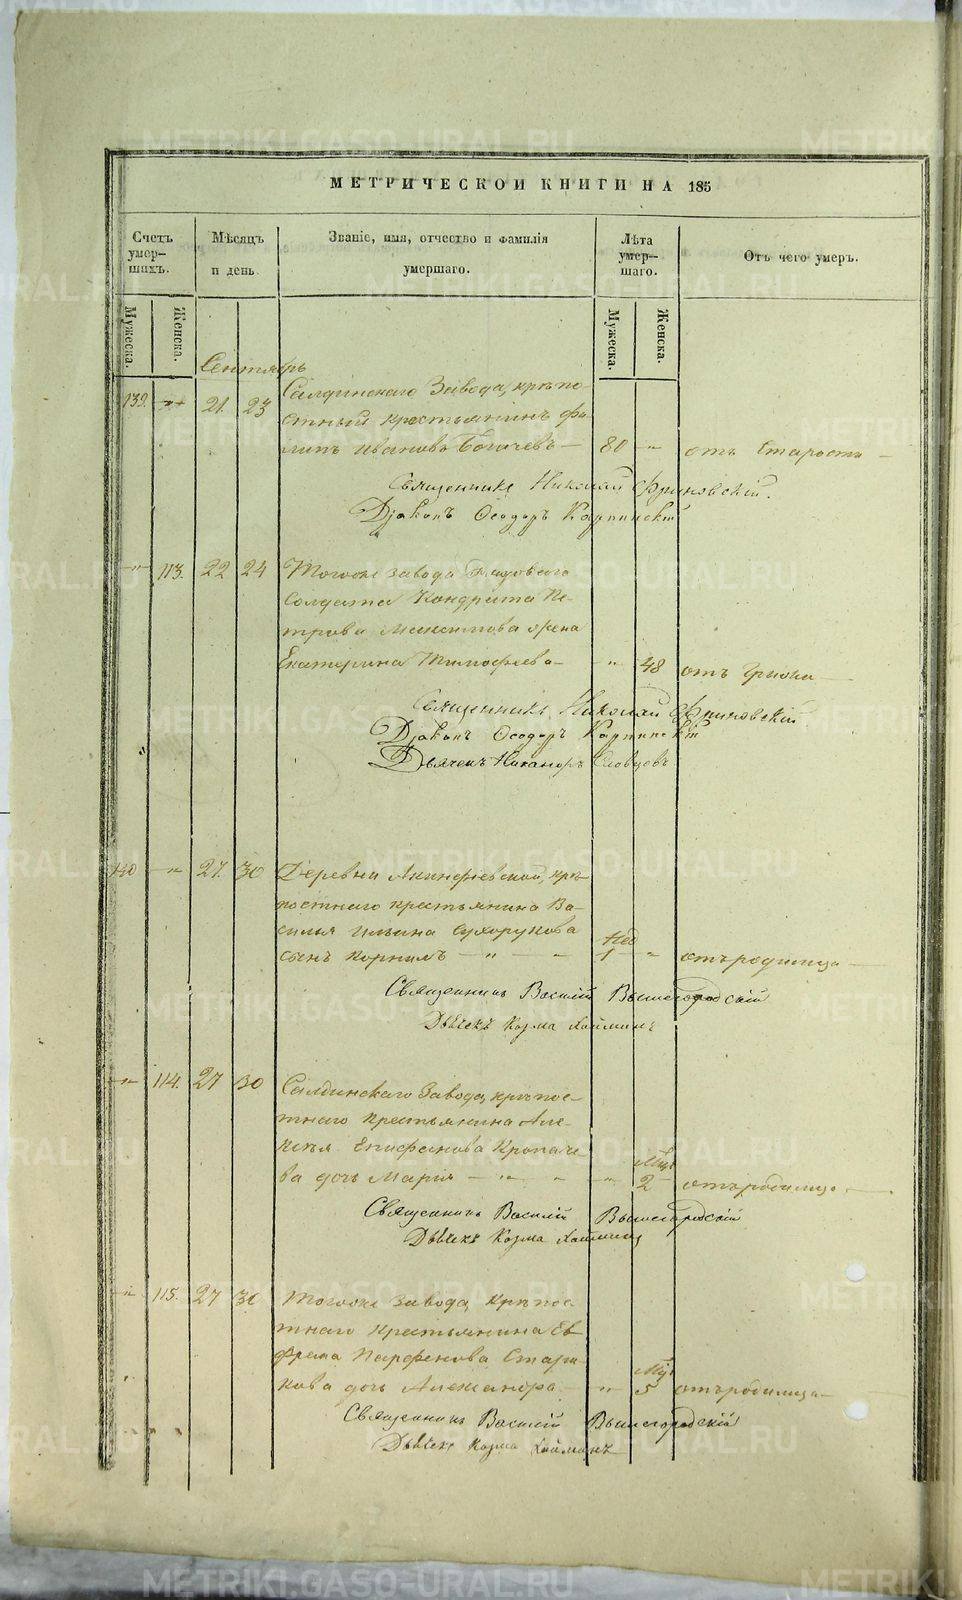 МЕТРИЧЕСКОЙ КНИГИ НА 185
Счетъ умер-шихъ.
Мѣсяцъ и день
Званіе, имя, отчество и фамилія умершаго.
Лѣта умер-шаго.
Отъ чего умеръ.
Мужеска.
Женска.
Мужеска.
Женска.
Сентябрь
139. -"- 21. 23 Салдинскаго Завода, крѣпо-
стный крестьянинъ Фи-
липъ Ивановъ Богачевъ — 80 " отъ старости —
Священникъ Николай Фриновскій.
Діаконъ Ѳеодоръ Карпинскій
-"- 113. 22 24 Тогоже завода
Солдата Кондрата Пе-
трова Максимова жена
Екатерина Тимофеева — " 48 отъ
Священникъ Николай Фриновскій
Діаконъ Ѳеодоръ Карпинскій
Дьячекъ Никаноръ Словцовъ
140 -"- 27. 30 Деревни Акинфіевской, крѣ-
постнаго крестьянина Ва-
силья Ильина Сухорукова
нед
сынъ Корнилъ — " — " 1 " отъ родимца —
Священникъ Василій Вышегородскій
Дьячекъ Козма Хайминъ
-"- 114. 27 30 Салдинскаго Завода, крѣпос-
тнаго крестьянина Але-
ксѣя Епифанова Кропаче-
Мѣц.
ва дочь Марія — " — " " 2 отъ родимца —
Священникъ Василій Вышегородскій
Дьячекъ Козма Хайминъ
-"- 115. 27 30 Тогоже завода, Крѣпос-
тнаго крестьянина Еф
фрема Парфенова Стари-
Мѣц.
кова дочь Александра — " 5 отъ родимца —
Священникъ Василій Вышегородскій
Дьячекъ Козма Хайминъ
METRIKI.GASO-URAL.RU